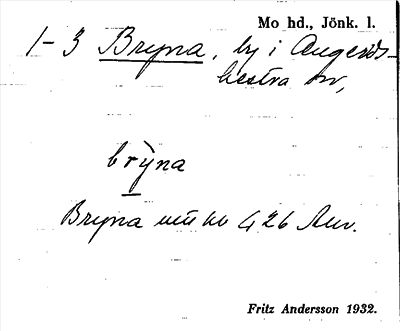 Mo hd., Jönk. l.
1-3 Bryna, by i Angerds-
hestra sn,
brỳna
Bryna 426
Fritz Andersson 1932.